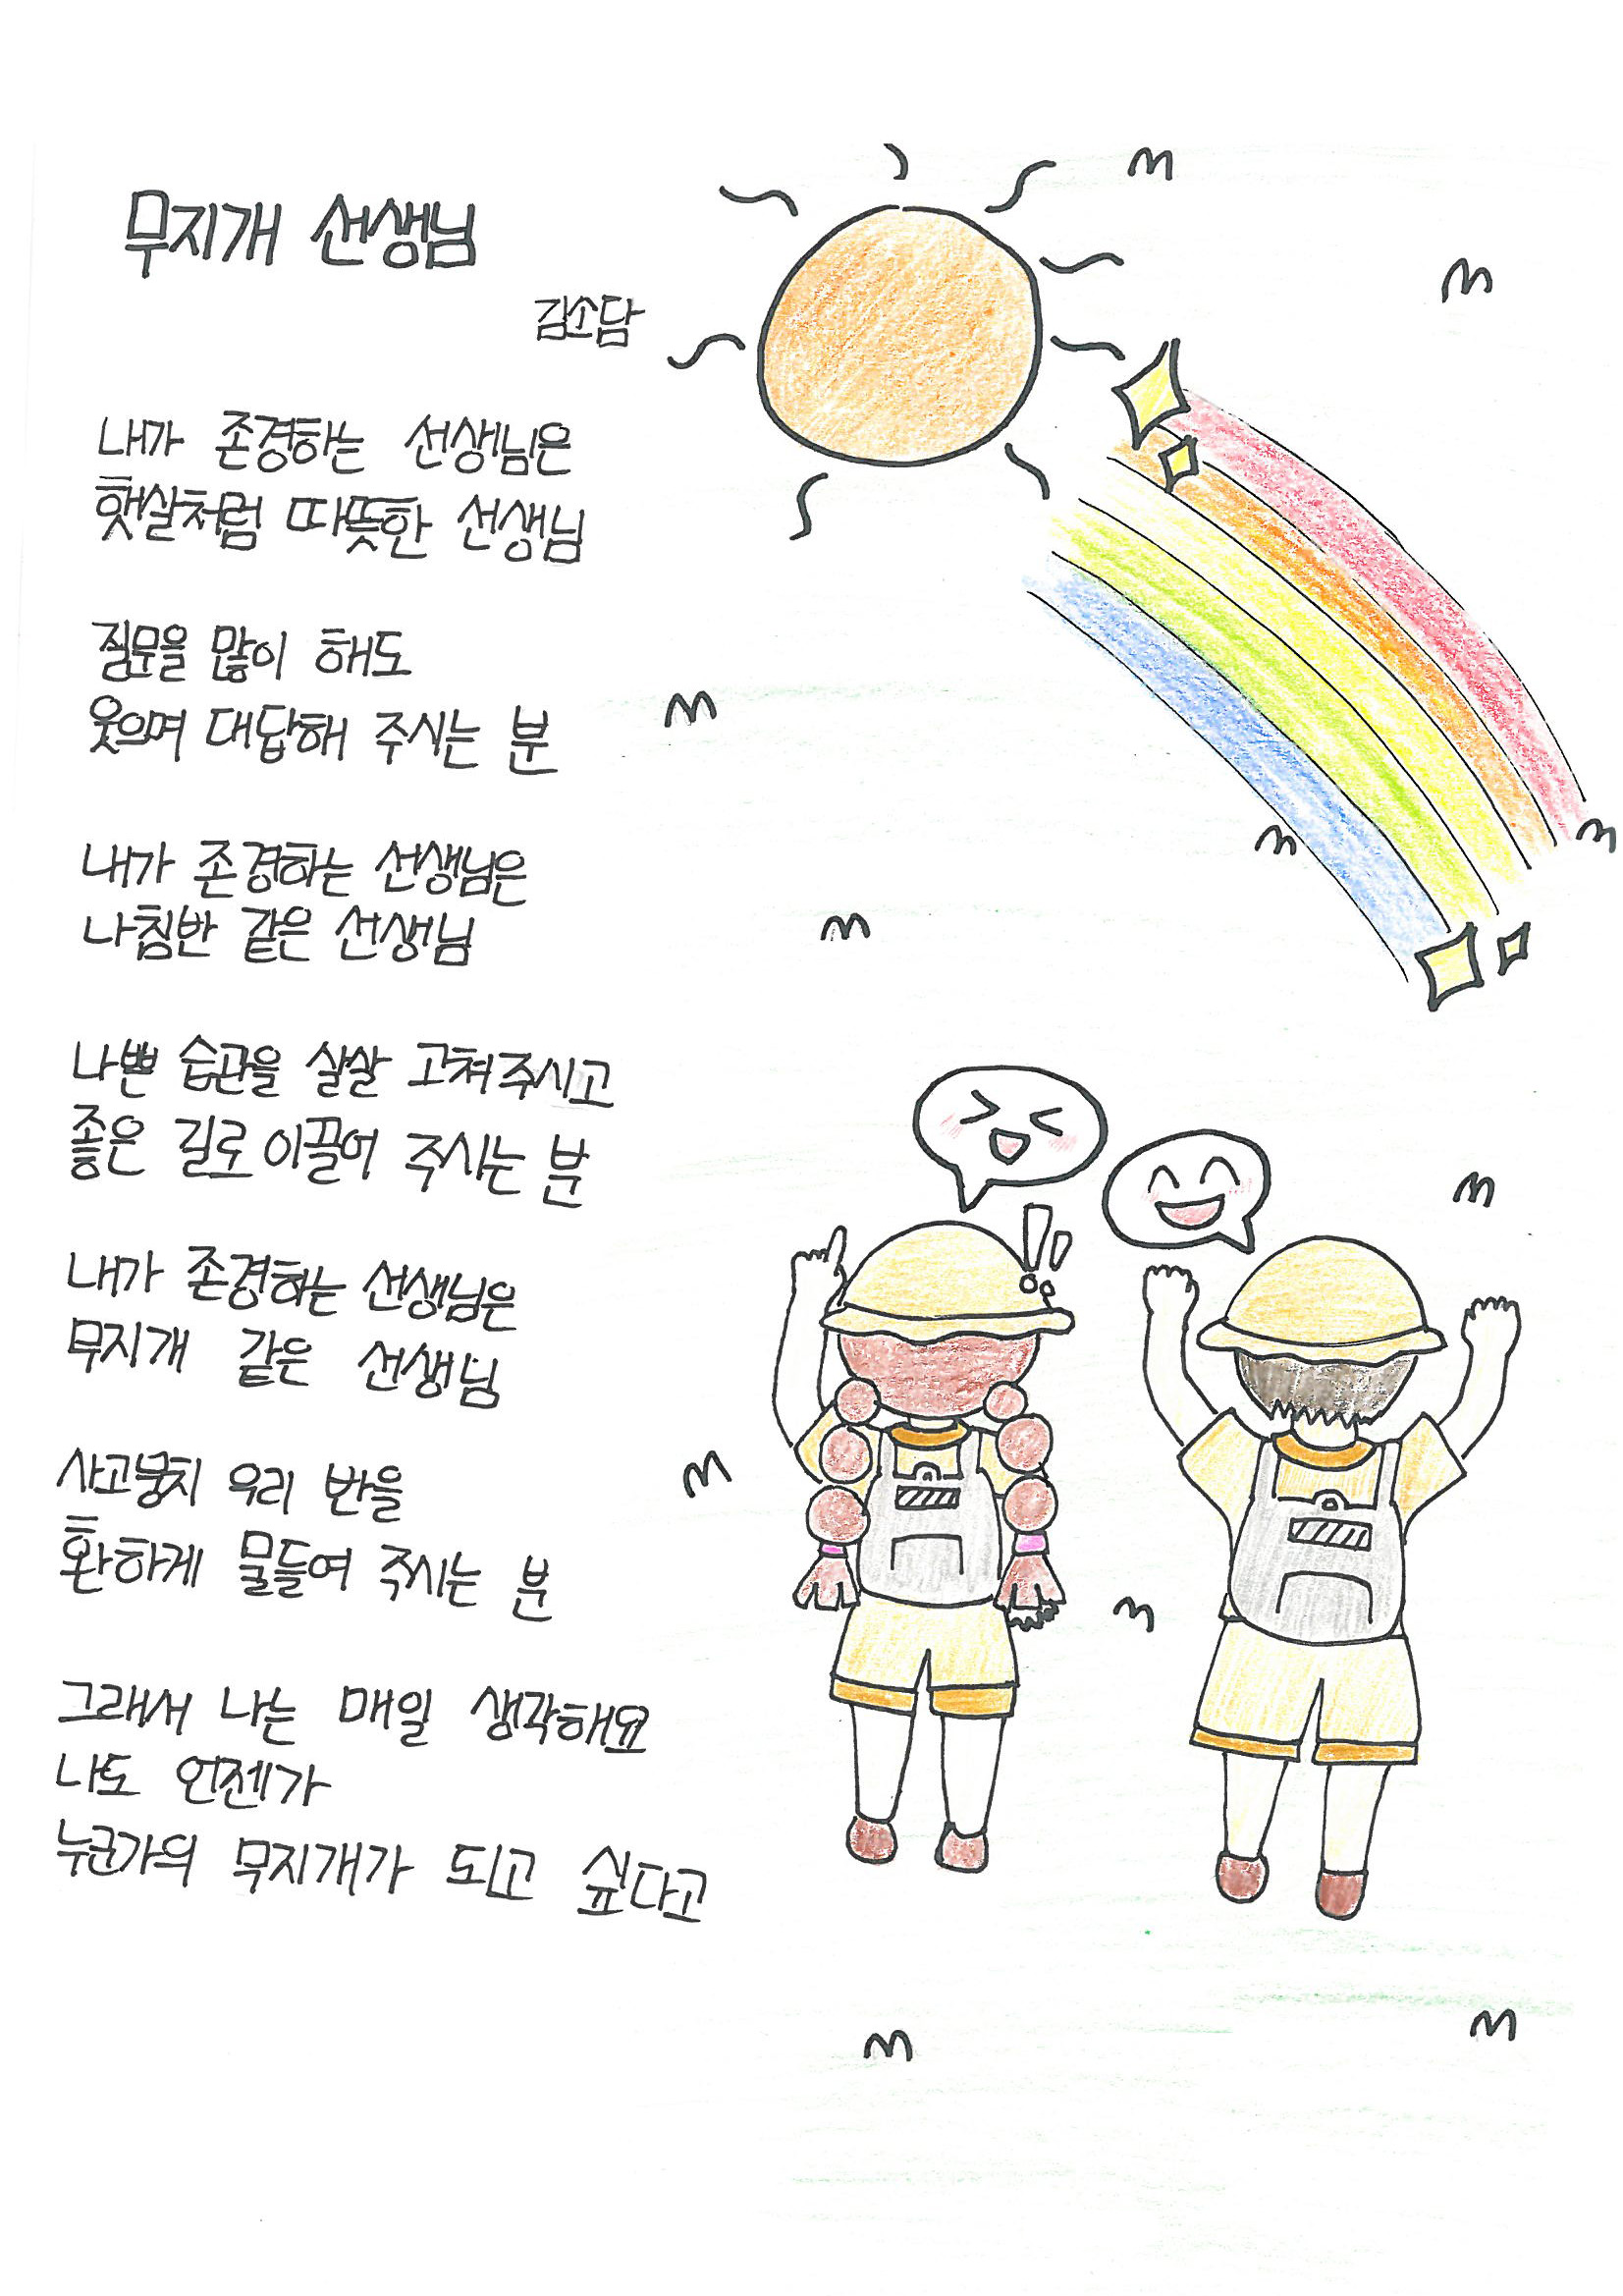 무지개 선생님
김소담
내가 존경하는 선생님은
햇살처럼 따뜻한 선생님
질문을 많이 해도
웃으며 대답해 주시는 분
내가 존경하는 선생님은
나침반 같은 선생님
나쁜 습관을 살살 고쳐주시고
좋은 길로 이끌어 주시는 분
내가 존경하는 선생님은
무지개 같은 선생님
사고뭉치 우리 반을
환하게 물들여 주시는 분
그래서 나는 매일 생각해요
나도 언젠가
누군가의 무지개가 되고 싶다고